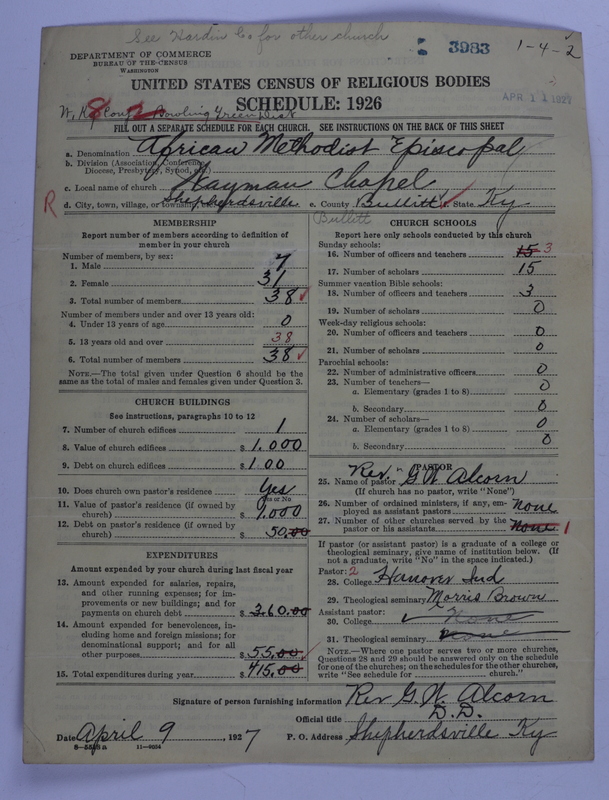 See Hardin Co for other church
3983
1-4-2
DEPARTMENT OF COMMERCE
BUREAU OF THE CENSUS
WASHINGTON
UNITED STATES CENSUS OF RELIGIOUS BODIES
SCHEDULE: 1926
APR 11 1927
W. Ky Conf Bowling Green Dist
8
FILL OUT A SEPARATE SCHEDULE FOR EACH CHURCH. SEE INSTRUCTIONS ON THE BACK OF THIS SHEET
a. Denomination African Methodist Episcopal
b. Division (Association, Conference, Diocese, Presbytery, Synod, etc.)
c. Local name of church Hayman Chapel
R
d. City, town, village, or township Shepherdsville e. County Bullitt f. State Ky
Bullitt
MEMBERSHIP
Report number of members according to definition of member in your church
Number of members, by sex:
1. Male 7
2. Female 31
3. Total number of members 38 ✓
Number of members under and over 13 years old:
4. Under 13 years of age 0
5. 13 years old and over 38
6. Total number of members 38 ✓
NOTE.—The total given under Question 6 should be the same as the total of males and females given under Question 3.
CHURCH BUILDINGS
See instructions, paragraphs 10 to 12
7. Number of church edifices 1
8. Value of church edifices $ 1,000
9. Debt on church edifices $ 100
10. Does church own pastor's residence Yes
Yes or No
11. Value of pastor's residence (if owned by church) $ 1,000
12. Debt on pastor's residence (if owned by church) $ 50.00
EXPENDITURES
Amount expended by church during last fiscal year
13. Amount expended for salaries, repairs, and other running expenses; for improvements or new buildings; and for payments on church debt $ 360.00
14. Amount expended for benevolences, including home and foreign missions; for denominational support; and for all other purposes $ 55.00
15. Total expenditures during year $ 415.00
CHURCH SCHOOLS
Report here only schools conducted by this church
Sunday schools:
16. Number of officers and teachers 15 3
17. Number of scholars 15
Summer vacation Bible schools:
18. Number of officers and teachers 3
19. Number of scholars 0
Week-day religious schools:
20. Number of officers and teachers 0
21. Number of scholars 0
Parochial schools:
22. Number of administrative officers 0
23. Number of teachers—
a. Elementary (grades 1 to 8) 0
b. Secondary 0
24. Number of scholars—
a. Elementary (grades 1 to 8) 0
b. Secondary 0
PASTOR
25. Name of pastor Rev. G. W. Alcorn
(If church has no pastor, write "None")
26. Number of ordained ministers, if any, employed as assistant pastors none
27. Number of other churches served by the pastor or his assistants None 1
If pastor (or assistant pastor) is a graduate of a college or theological seminary, give name of institution below. (If not a graduate, write "No" in the space indicated.)
Pastor: 2
28. College Hanover Ind
29. Theological seminary Morris Brown
Assistant pastor:
30. College None
31. Theological seminary None
NOTE.—Where one pastor serves two or more churches, Questions 28 and 29 should be answered only on the schedule for one of the churches; on the schedules for the other churches, write "See schedule for church."
Signature of person furnishing information Rev G. W. Alcorn
Official title D.D.
Date April 9, 1927 P. O. Address Shepherdsville Ky
8-5558a 11-9034